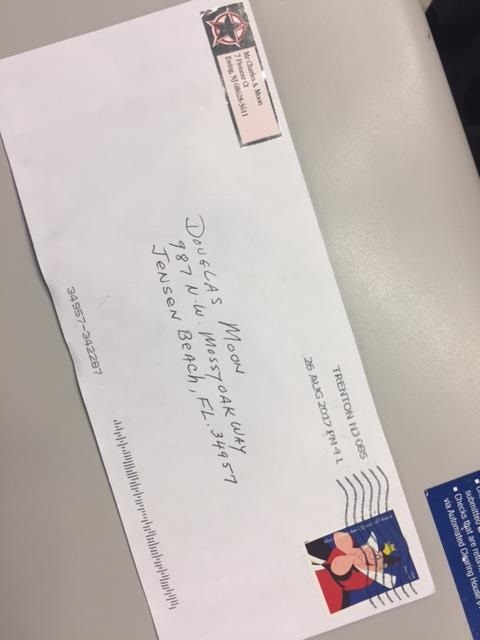 Mr Charles A. Moon
7 Pioneer Ct
Ewing, NJ 08628-3611
TRENTON NJ 085
26 AUG 2017 PM 4 L
DOUGLAS MOON
987 N.W. MOSSY OAK WAY
JENSEN BEACH, FL. 34957
34957-342287
submitted
■ Checks that are return
via Automated Clearing House